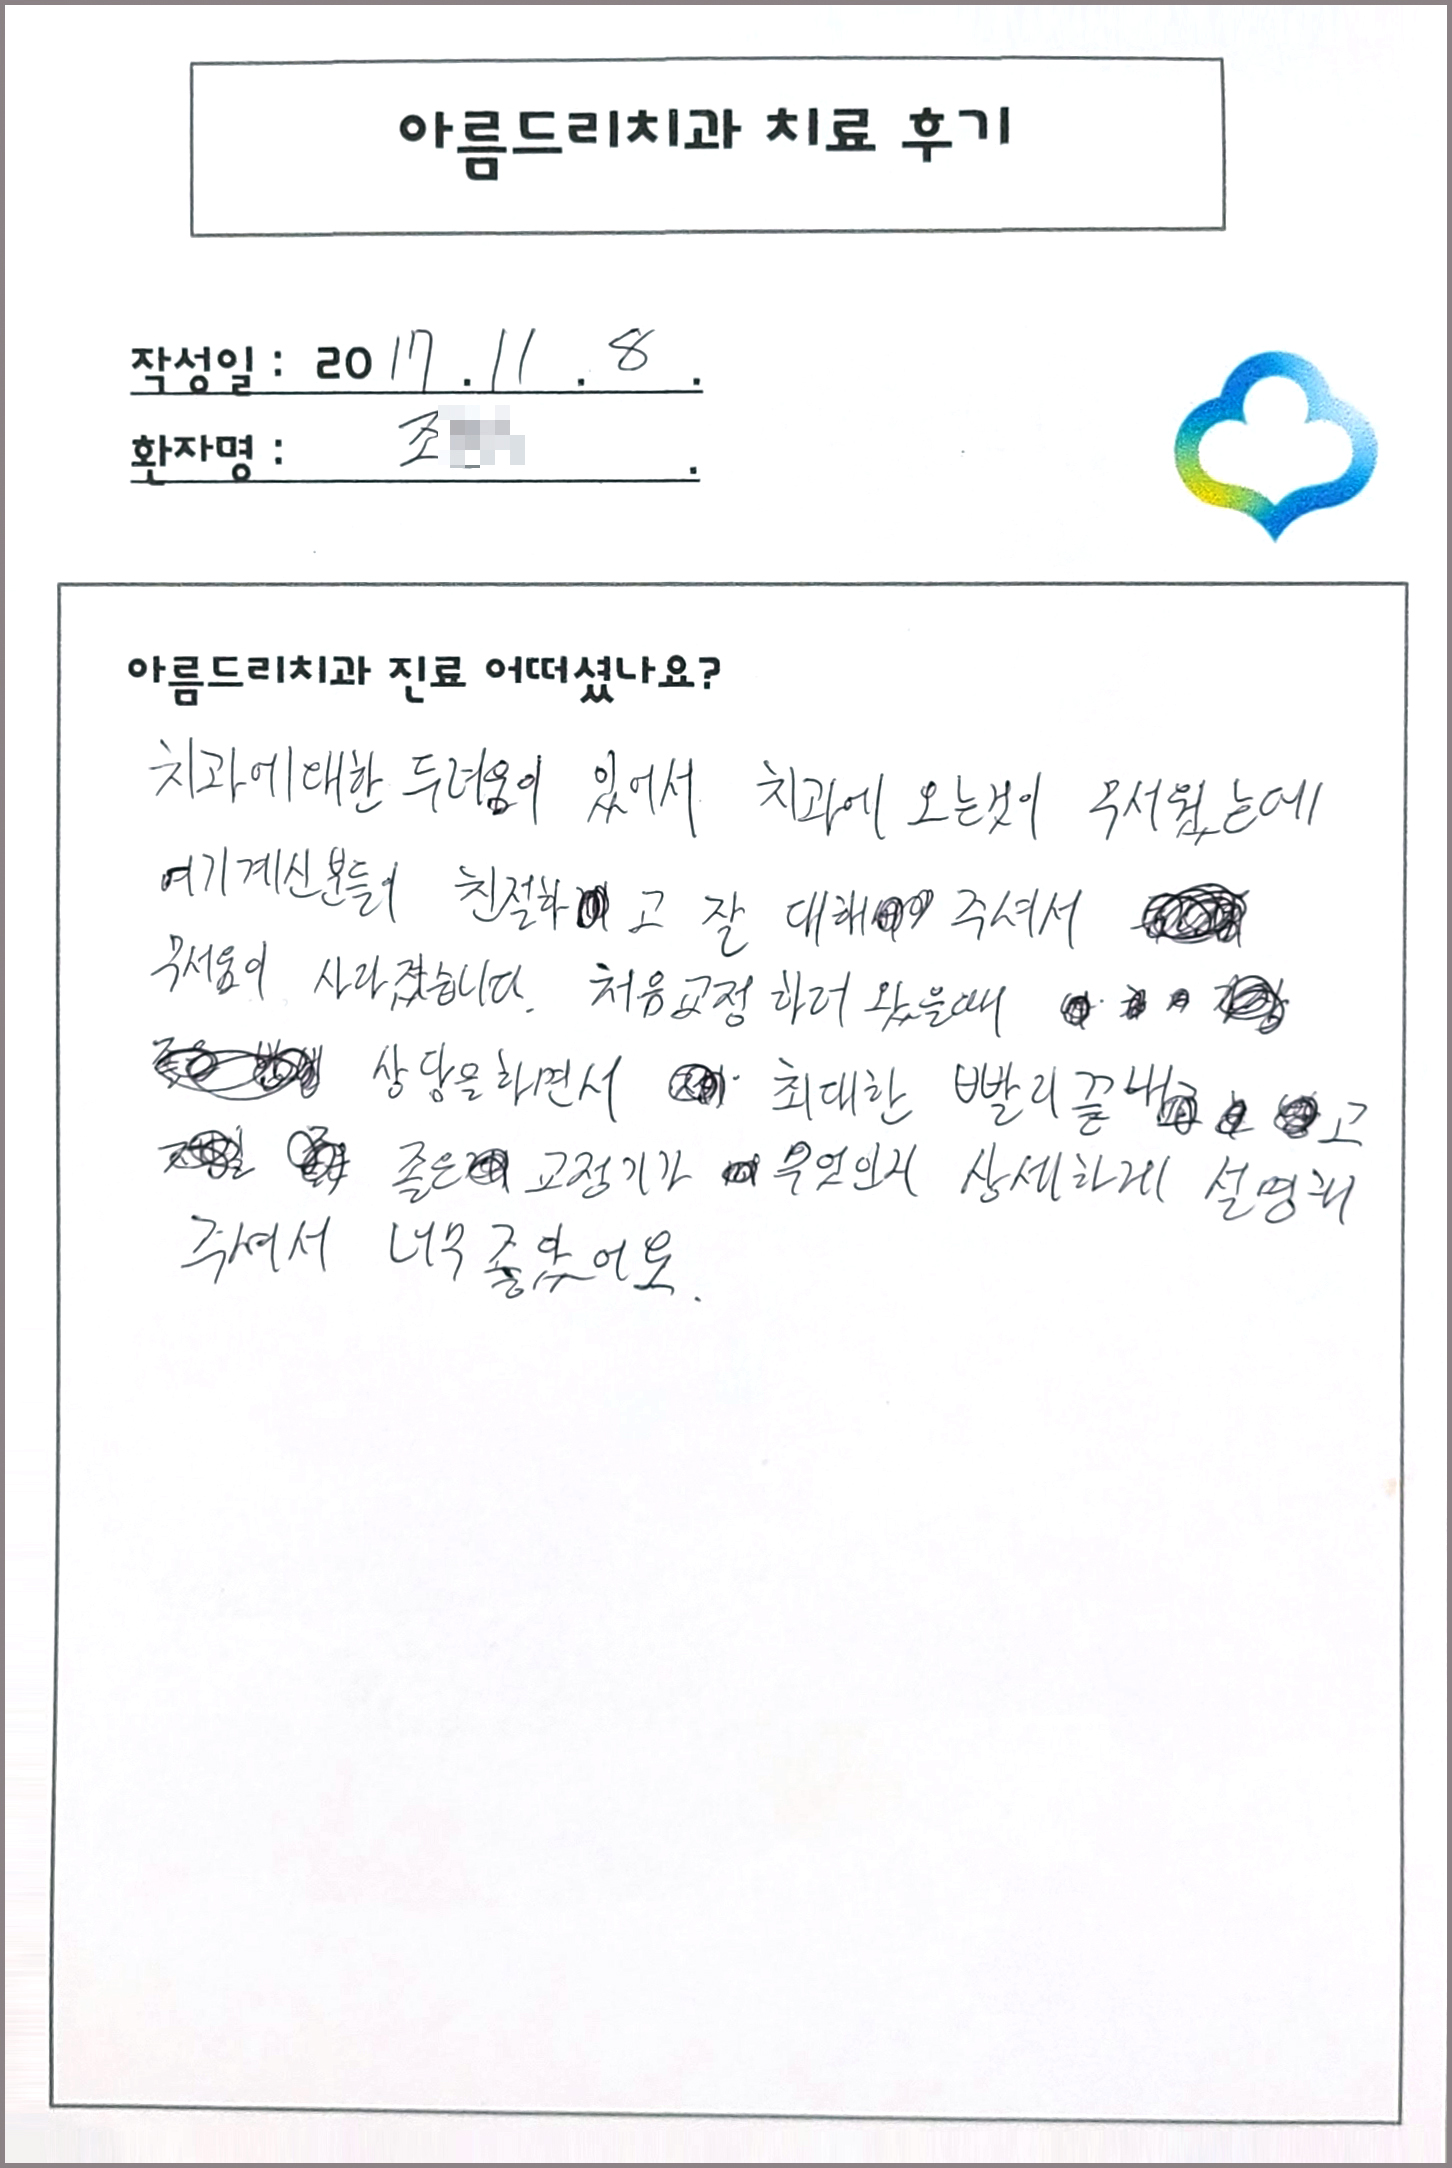 아름드리치과 치료 후기
작성일 : 2017.11.8.
환자명 : 조 .
아름드리치과 진료 어떠셨나요?
치과에대한 두려움이 있어서 치과에 오는것이 무서웠는데
여기계신분들이 친절하고 잘 대해 주셔서
무서움이 사라졌습니다. 처음교정하러 왔을때
상담을하면서 최대한 빨리끝내고
좋은 교정기가 무엇인지 상세하게 설명해
주셔서 너무좋았어요.